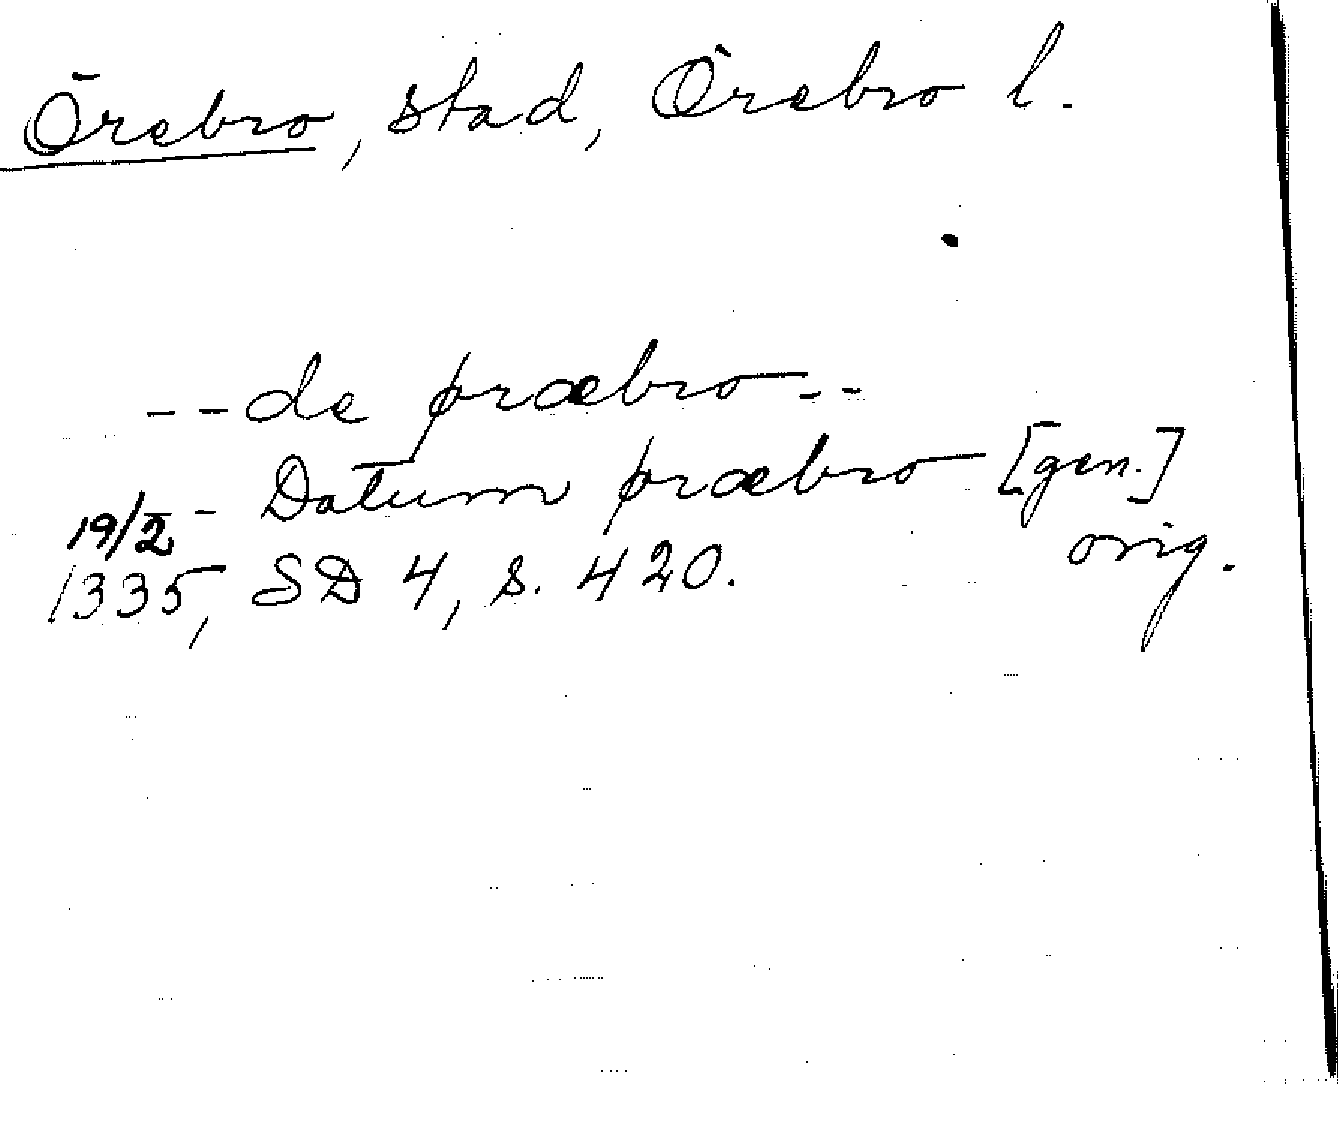 Örebro, stad, Örebro l.
- - de øræbro - -
- Datum øræbro [gen.]
19/2 orig.
1335, SD 4, s. 420.